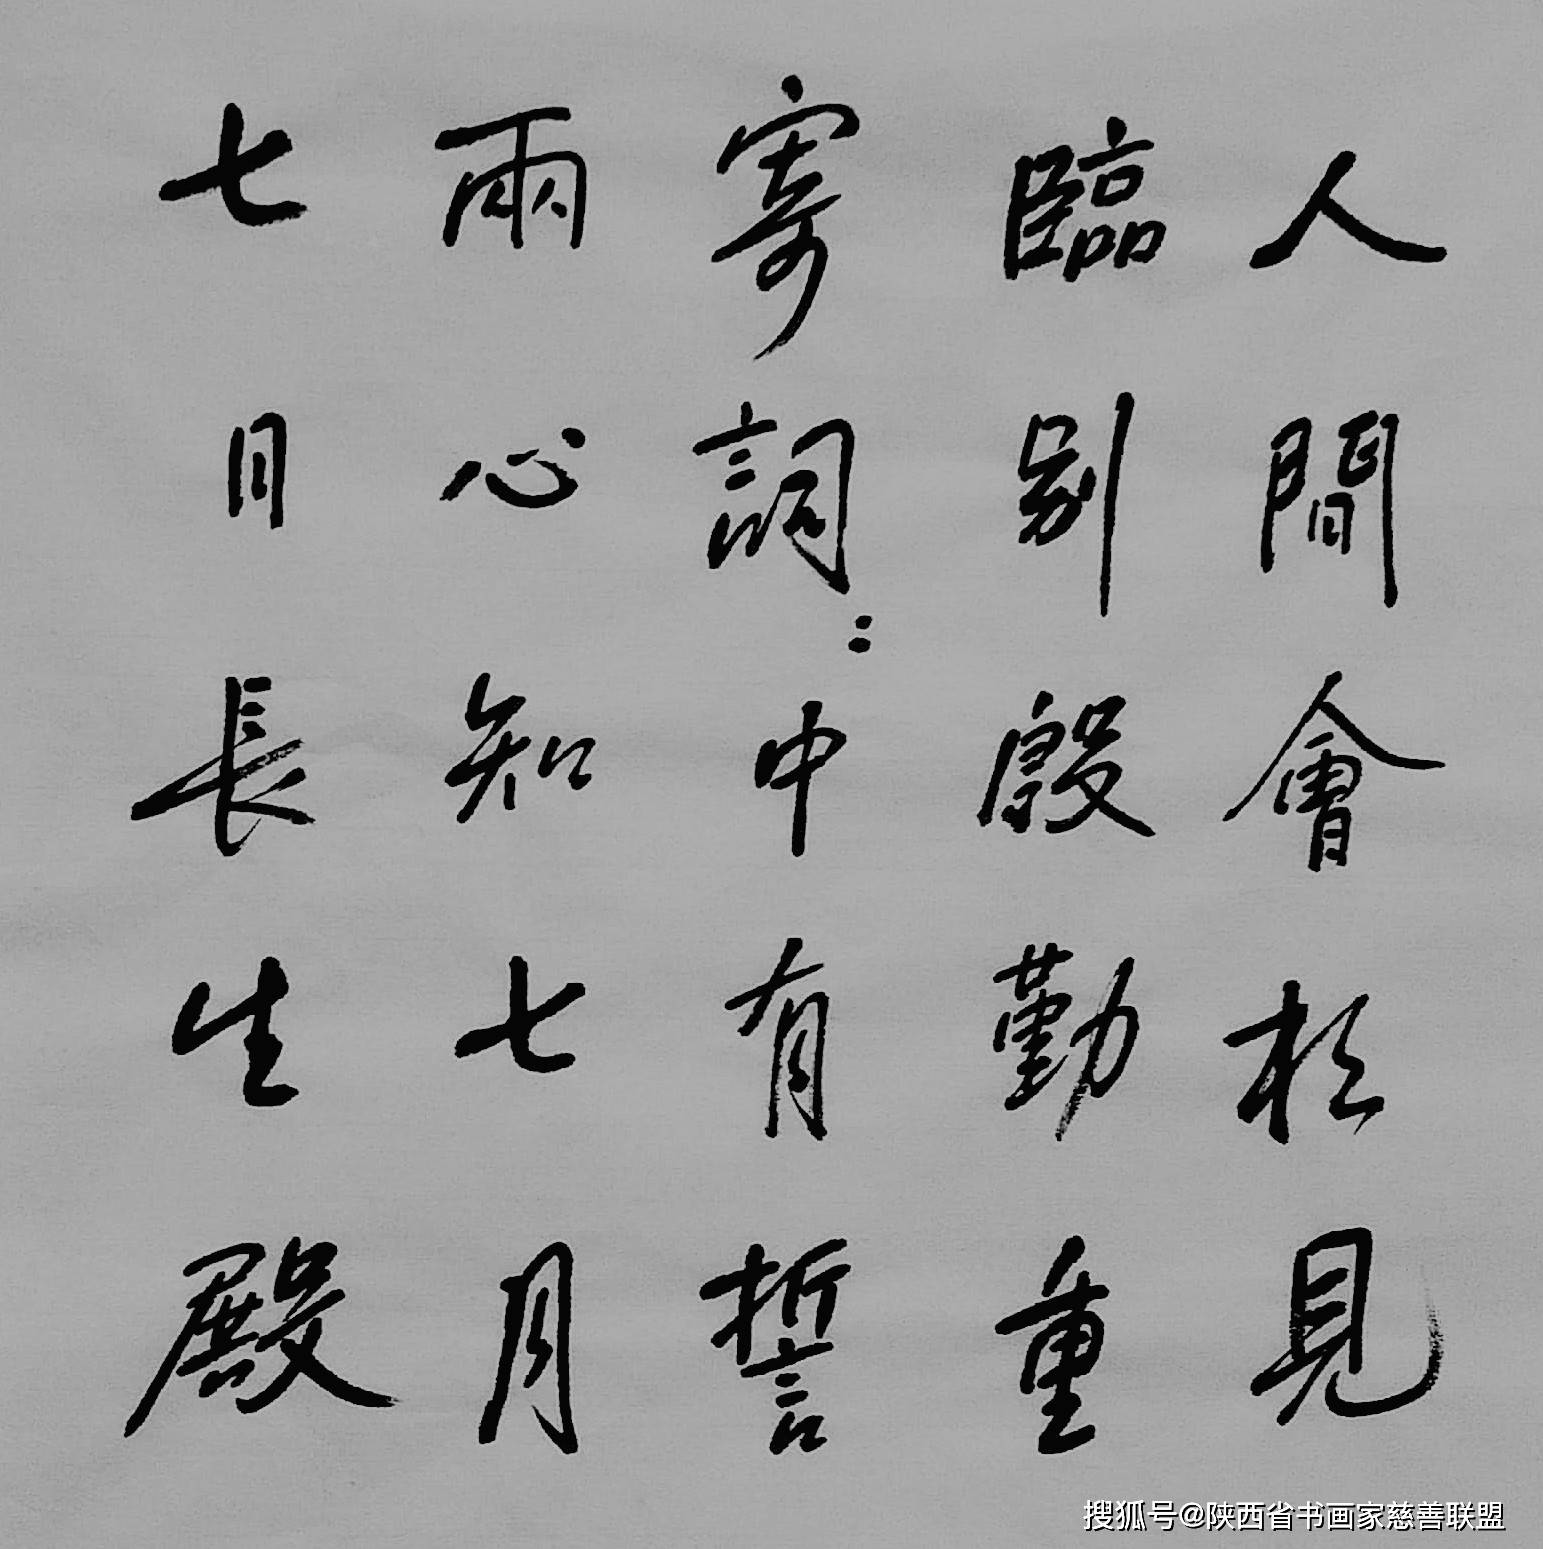 人間會相見
臨別殷勤重
寄詞：中有誓
兩心知七月
七日長生殿
搜狐号@陕西省书画家慈善联盟